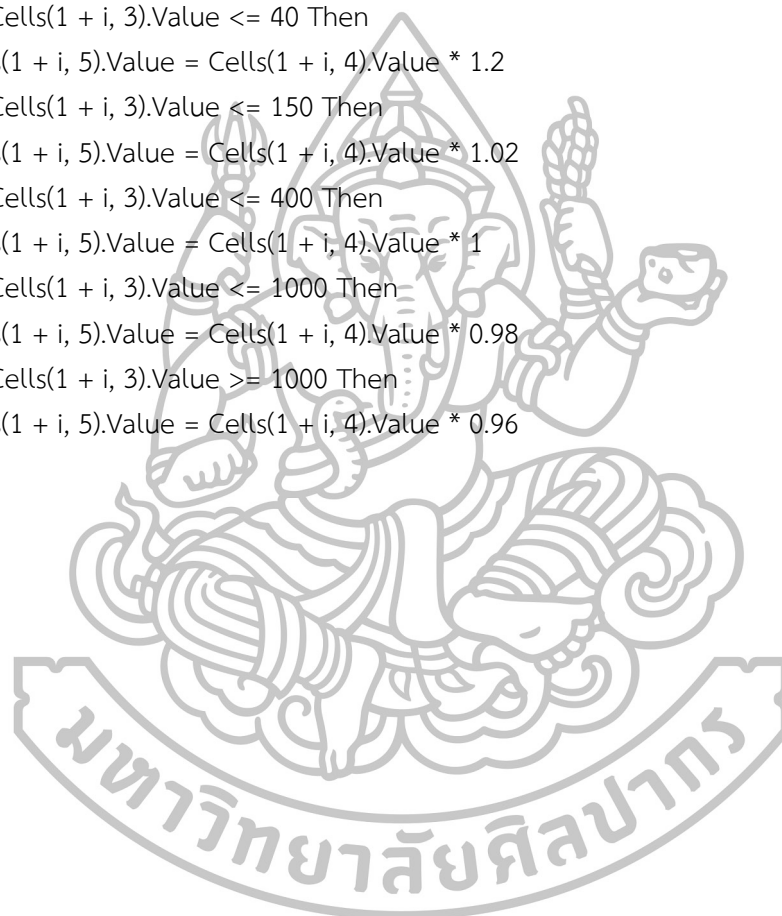 Cells(1 + i, 3).Value <= 40 Then
(1 + i, 5).Value = Cells(1 + i, 4).Value * 1.2
Cells(1 + i, 3).Value <= 150 Then
(1 + i, 5).Value = Cells(1 + i, 4).Value * 1.02
Cells(1 + i, 3).Value <= 400 Then
(1 + i, 5).Value = Cells(1 + i, 4).Value * 1
Cells(1 + i, 3).Value <= 1000 Then
(1 + i, 5).Value = Cells(1 + i, 4).Value * 0.98
Cells(1 + i, 3).Value >= 1000 Then
(1 + i, 5).Value = Cells(1 + i, 4).Value * 0.96
มหาวิทยาลัยศิลปากร